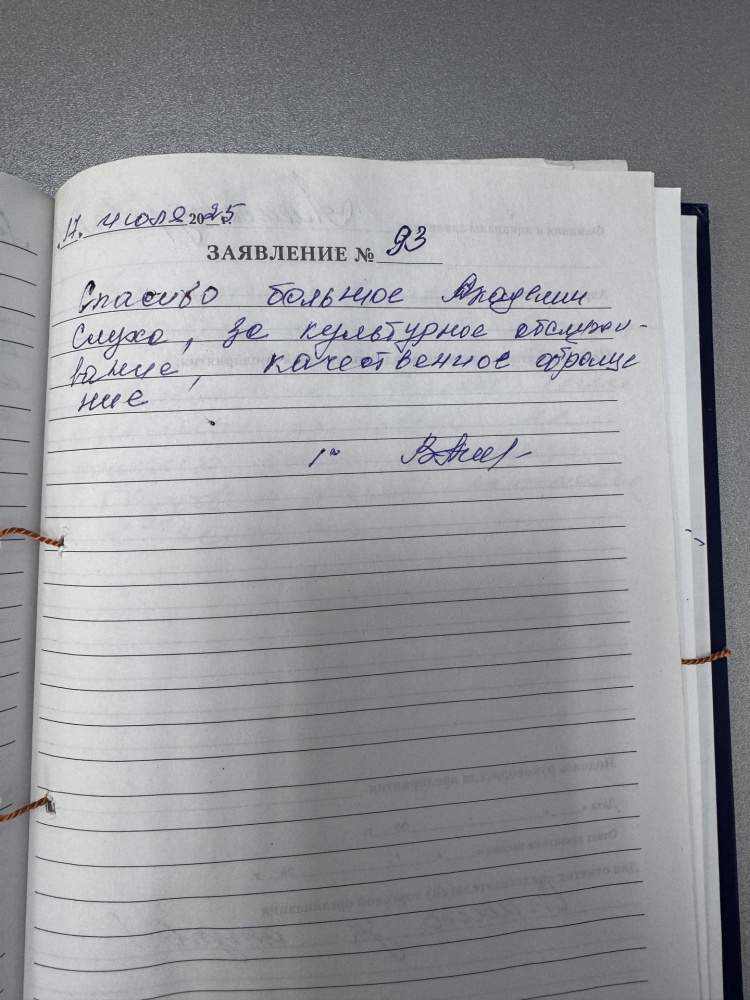 17. июля 2025 г.
ЗАЯВЛЕНИЕ № 93
Спасибо большое Академии
Слуха, за культурное обслужи-
вание, качественное обраще
ние